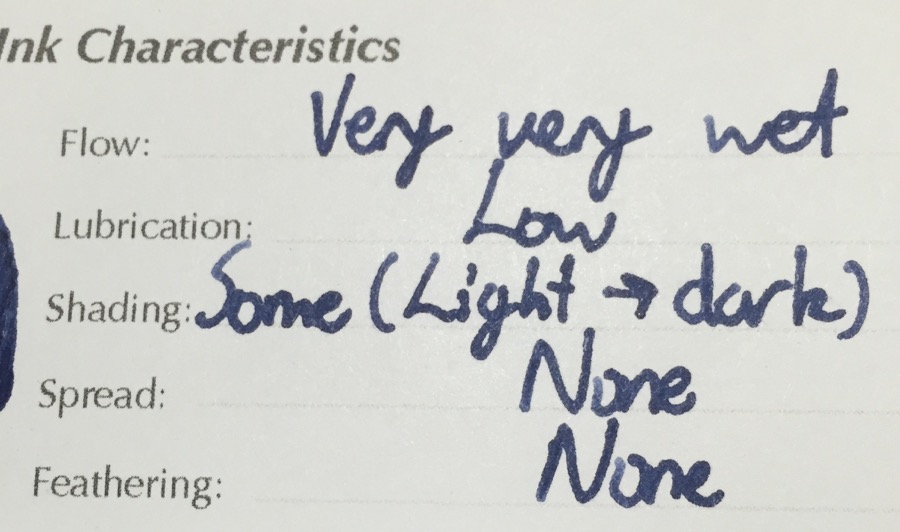 Ink Characteristics
Flow: Very very wet
Lubrication: Low
Shading: Some (Light → dark)
Spread: None
Feathering: None